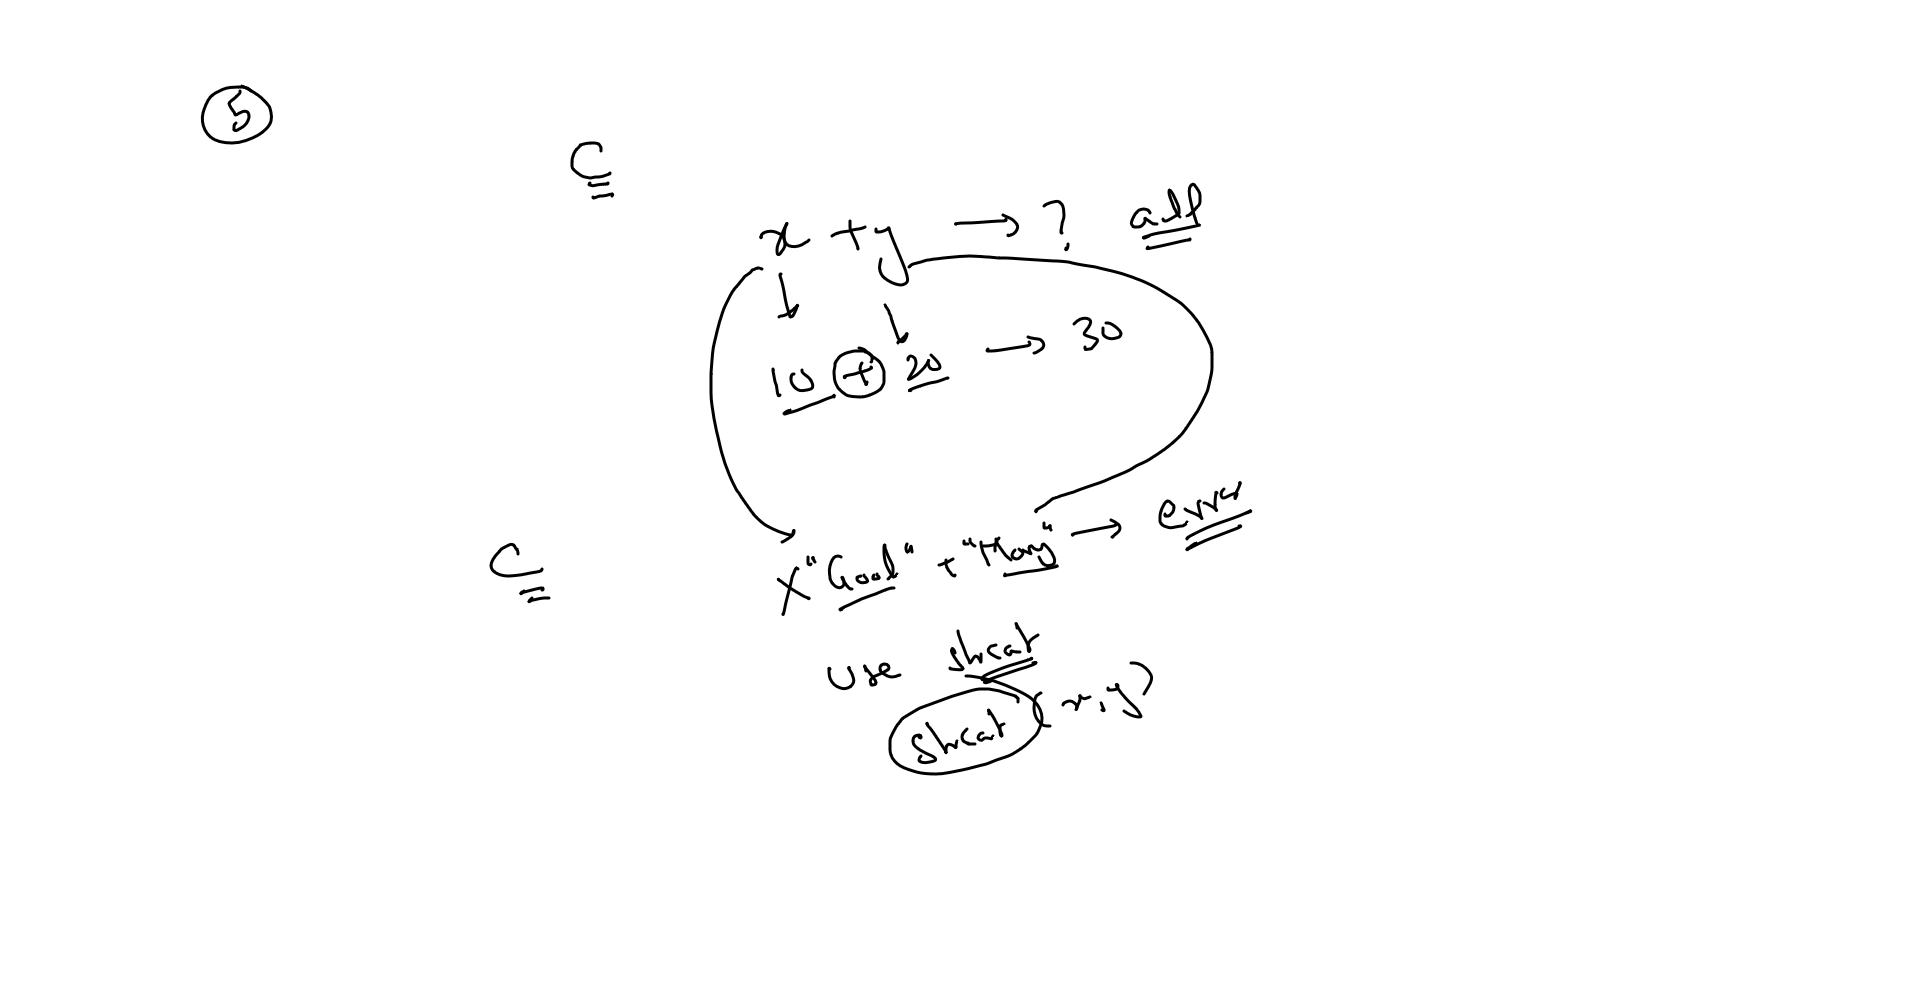 5
C
x + y → ? add
10 + 20 → 30
C
X "Good" + "Mong" → error
use strcat
strcat (x, y)